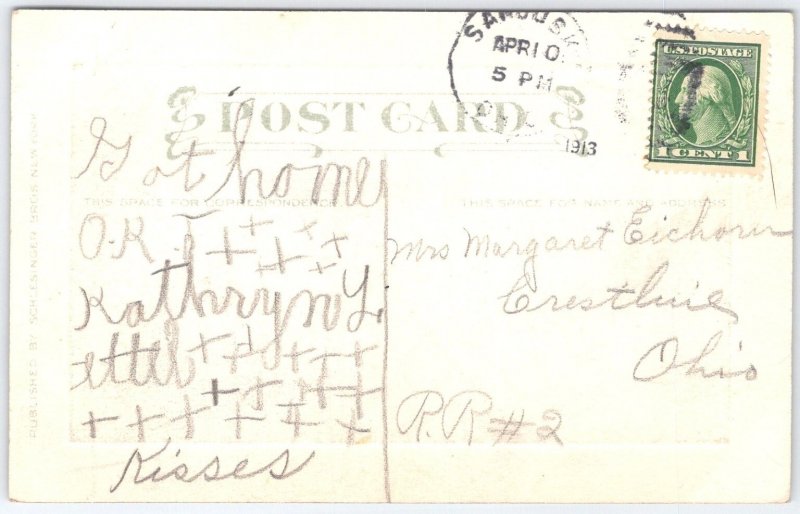 SANDUSKY
APR 10
5 PM
OHIO
1913
U.S. POSTAGE
1 CENT 1
POST CARD
THIS SPACE FOR CORRESPONDENCE
THIS SPACE FOR NAME AND ADDRESS
PUBLISHED BY SCHLESINGER BROS. NEW YORK
Got home
O.K. + + + + +
+ + +
Kathryn L
ettel + + + + +
+ + + + +
+ + + + + + +
Kisses
Mrs Margaret Eichorn
Crestline
Ohio
R.R #2